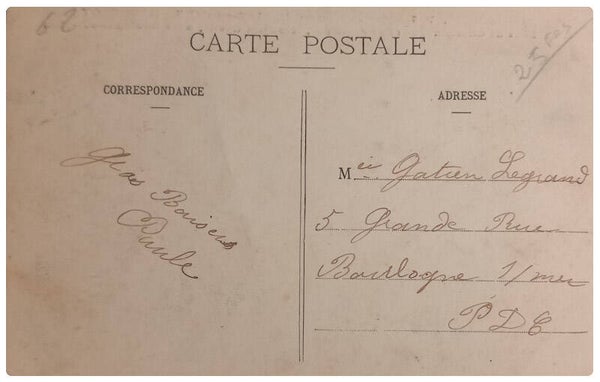 62
25
CARTE POSTALE
CORRESPONDANCE
Gros Baisers
Paule
ADRESSE
M Gatien Legrand
5 Grande Rue
Boulogne s/mer
P D C